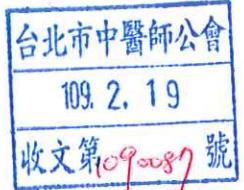 台北市中醫師公會
109. 2. 19
收文第1090087號